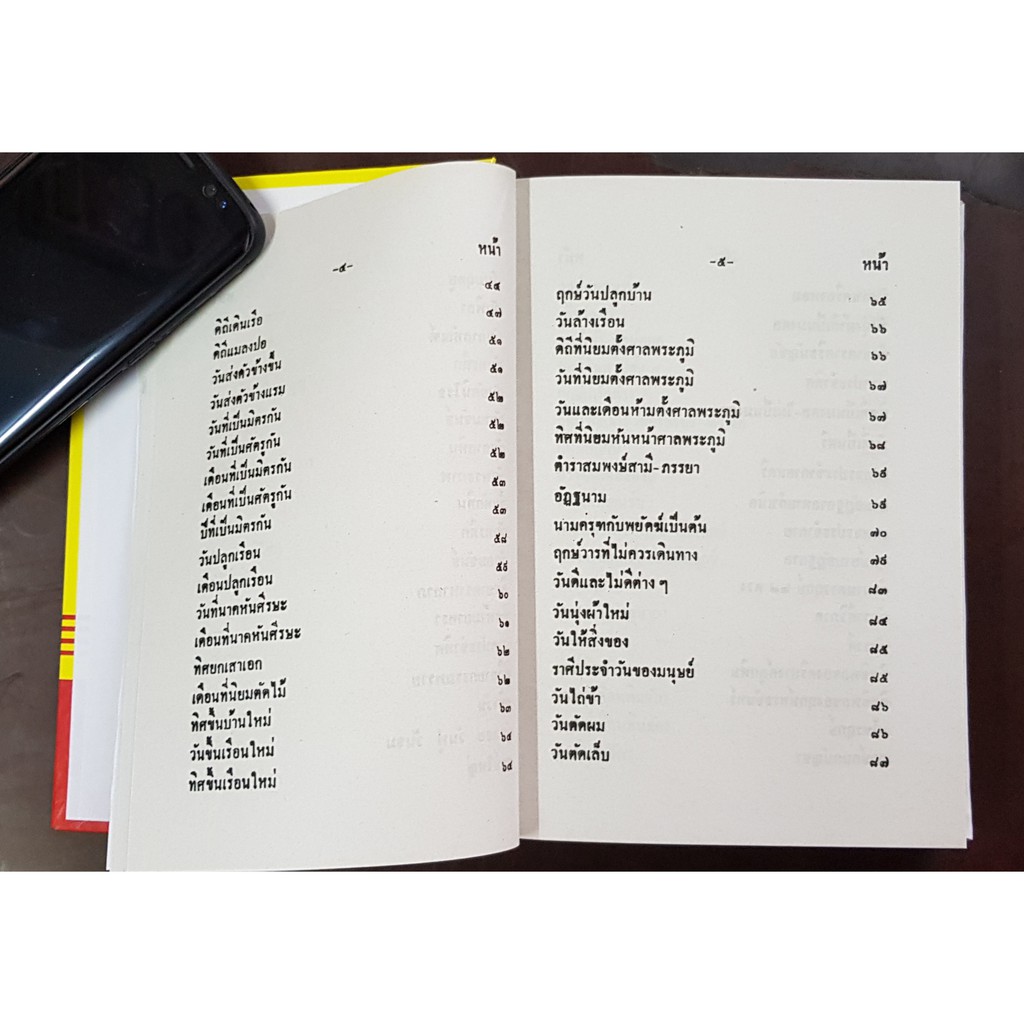 -๔- หน้า
ดิถีเดินเรือ ๔๕
ดิถีแมลงปอ ๔๗
วันส่งตัวข้างขึ้น ๕๑
วันส่งตัวข้างแรม ๕๑
วันที่เป็นมิตรกัน ๕๒
วันที่เป็นศัตรูกัน ๕๒
เดือนที่เป็นมิตรกัน ๕๒
เดือนที่เป็นศัตรูกัน ๕๓
ปีที่เป็นมิตรกัน ๕๓
วันปลูกเรือน ๕๘
เดือนปลูกเรือน ๕๙
วันที่นาคหันศีรษะ ๖๐
เดือนที่นาคหันศีรษะ ๖๑
ทิศยกเสาเอก ๖๒
เดือนที่นิยมตัดไม้ ๖๒
ทิศขึ้นบ้านใหม่ ๖๓
วันขึ้นเรือนใหม่ ๖๔
ทิศขึ้นเรือนใหม่ ๖๔
-๕- หน้า
ฤกษ์วันปลูกบ้าน ๖๕
วันล้างเรือน ๖๖
ดิถีที่นิยมตั้งศาลพระภูมิ ๖๖
วันที่นิยมตั้งศาลพระภูมิ ๖๗
วันและเดือนห้ามตั้งศาลพระภูมิ ๖๗
ทิศที่นิยมหันหน้าศาลพระภูมิ ๖๘
ตำราสมพงษ์สามี-ภรรยา ๖๙
อัฏฐนาม ๖๙
นามครุฑกับพยัคฆ์เป็นต้น ๗๐
ฤกษ์วารที่ไม่ควรเดินทาง ๗๙
วันดีและไม่ดีต่าง ๆ ๘๓
วันนุ่งผ้าใหม่ ๘๔
วันให้สิ่งของ ๘๕
ราศีประจำวันของมนุษย์ ๘๕
วันไถ่ข้า ๘๖
วันตัดผม ๘๖
วันตัดเล็บ ๘๗